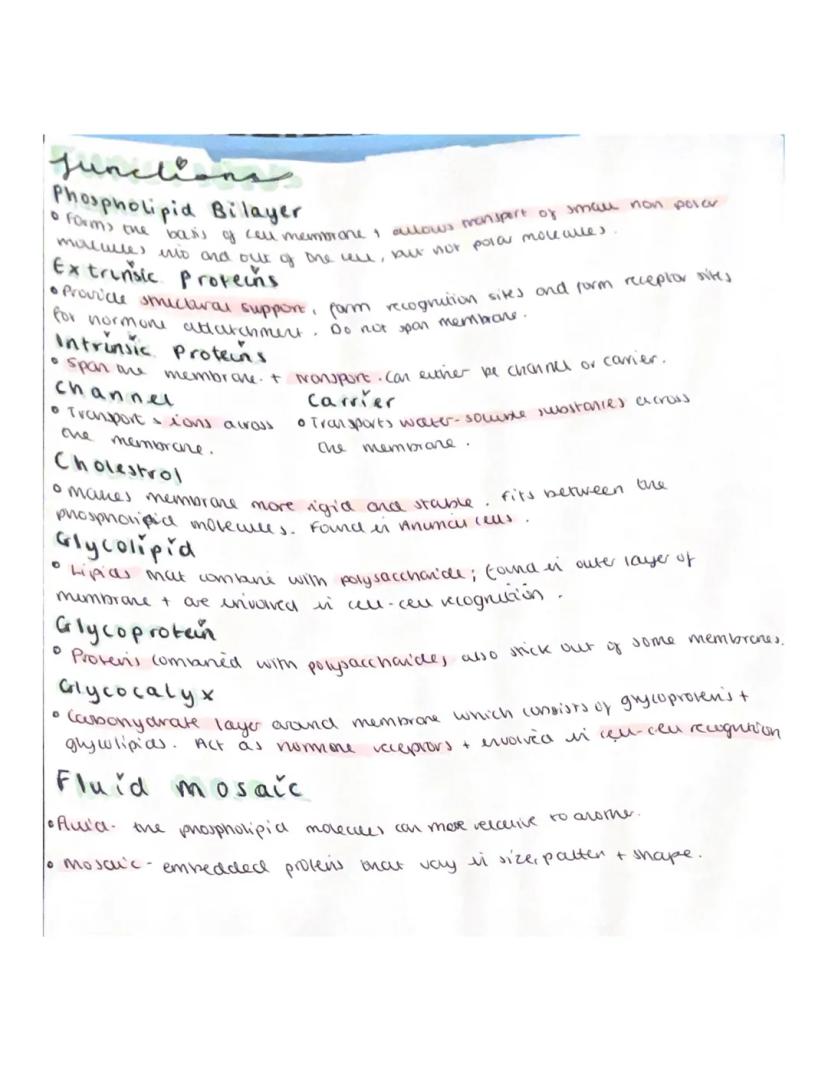 Functions
Phospholipid Bilayer
• Forms the basis of cell membrane + allows transport of small non polar
molecules into and out of the cell, but not polar molecules.
Extrinsic Proteins
• Provide structural support, form recognition sites and form receptor sites
for hormone attatchment. Do not span membrane.
Intrinsic Proteins
• Span the membrane. + transport. Can either be channel or carrier.
Channel
• Transports ions across
the membrane.
Carrier
• Transports water-soluble substances across
the membrane.
Cholestrol
• Makes membrane more rigid and stable. Fits between the
phospholipid molecules. Found in Animal cells.
Glycolipid
• Lipids that combine with polysaccharide; found in outer layer of
membrane + are involved in cell-cell recognition.
Glycoprotein
• Proteins combined with polysaccharides, also stick out of some membranes.
Glycocalyx
• Carbohydrate layer around membrane which consists of glycoproteins +
glycolipids. Act as hormone receptors + involved in cell-cell recognition
Fluid mosaic
• Fluid - the phospholipid molecules can move relative to another.
• Mosaic - embedded proteins that vary in size, patten + shape.